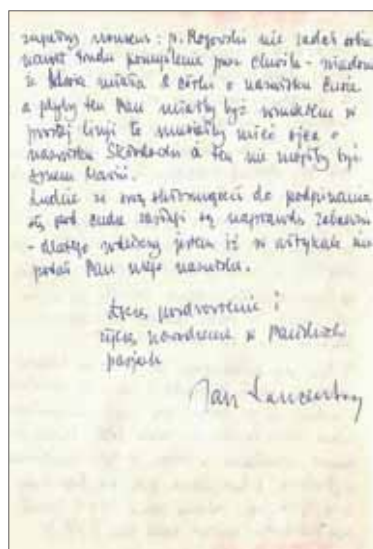 zupełny nonsens: p. Rogowski nie zadał sobie
nawet trudu pomyślenia przez chwilę - wiadomo
że Maria miała 2 córki o nazwisku Curie
a gdyby ten Pan miał być wnukiem w
prostej linji to musiałby mieć ojca o
nazwisku Skłodowski a ten nie mógłby być
synem Marii.
Ludzie są skłonni do podpisania
się pod cudze zasługi są naprawdę zabawni
- dlatego wdzięczny jestem iż w artykule nie
podał Pan mego nazwiska.
Łączę pozdrowienie i
życzę powodzenia w Pańskich
pasjach
Jan